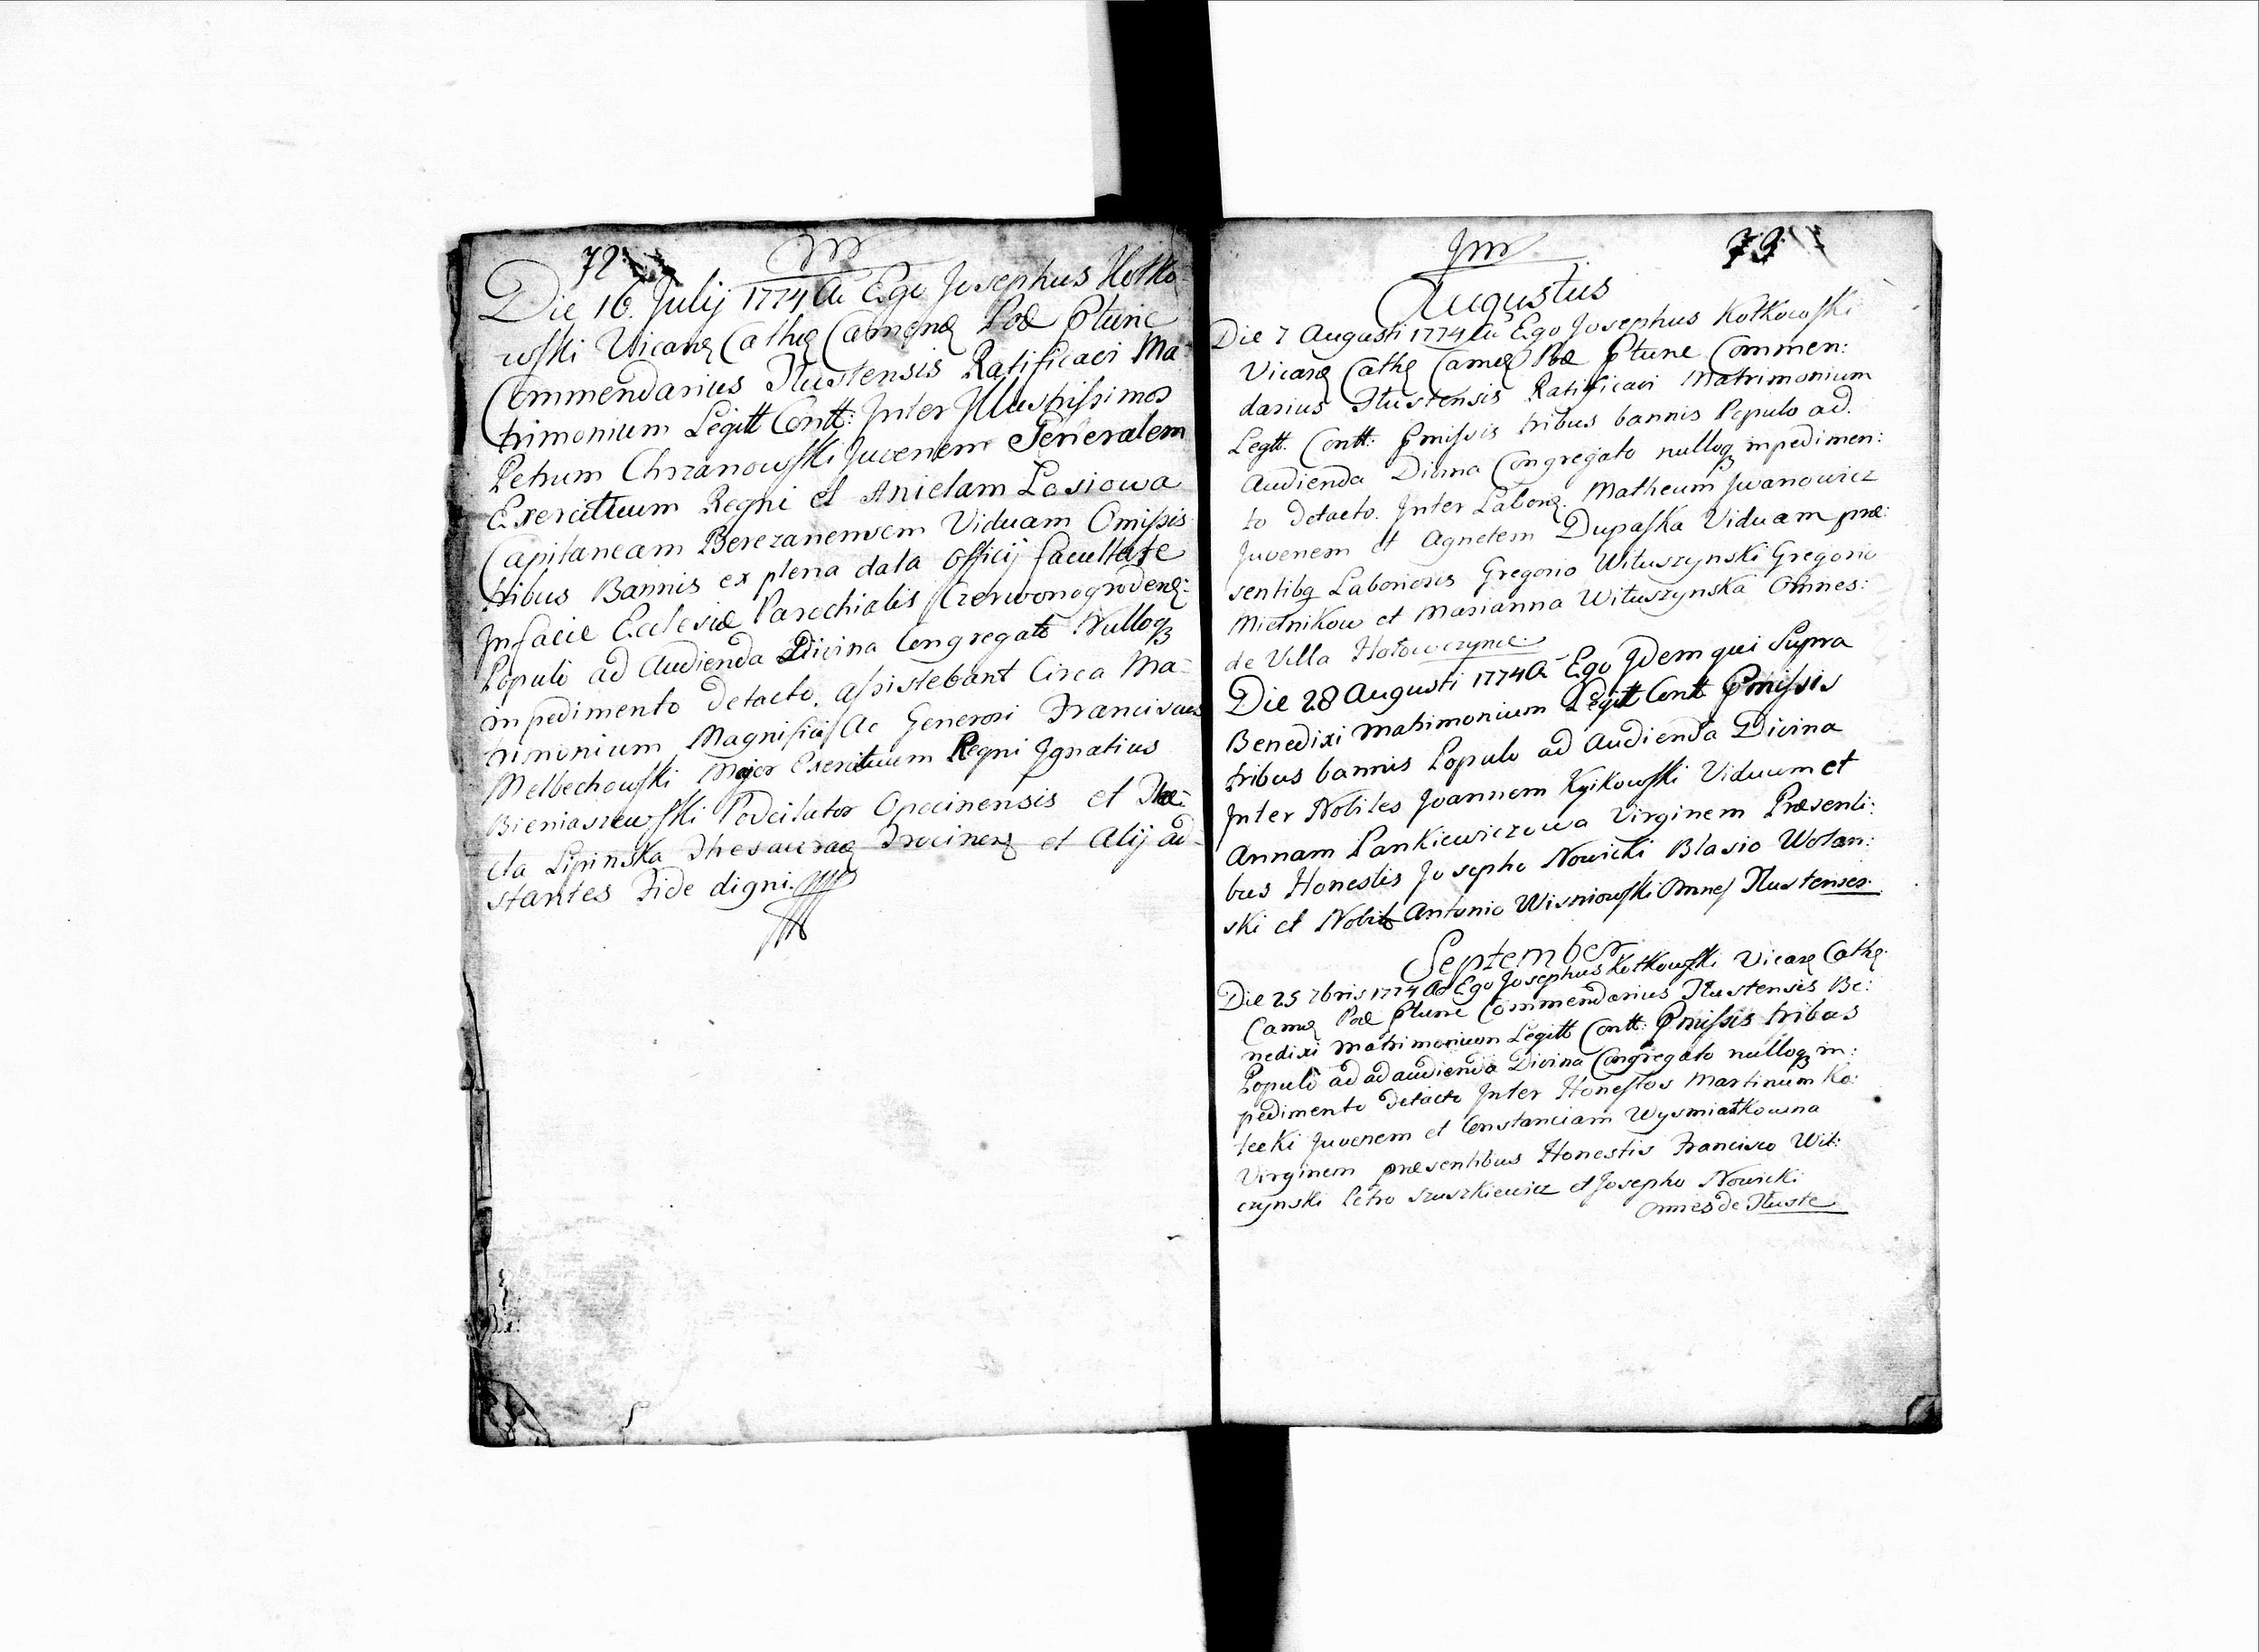 72
Die 16. Julij 1774 A Ego Josephus Kotko-
wski Vicarꝫ Cathꝫ Camenꝫ Poæ Ptunc
Commendarius Tlustensis Ratificavi Ma
trimonium Legitt Contt: Inter Illustrissimos
Petrum Chrzanowski Juvenem Generalem
Exercituum Regni et Anielam Losiowa
Capitaneam Berezanensem Viduam Omissis
tribus Bannis ex plena data Officij facultate
In facie Ecclesiæ Parochialis Czerwonogrodenꝫ:
Populo ad Audienda Divina Congregato Nulloqꝫ
impedimento detecto, assistebant Circa Ma-
trimonium Magnifici Ac Generosi Franciscus
Melbechowski Major Exercituum Regni Ignatius
Bieniaszewski Podcitator Opocinensis et The:
cla Lipinska Thesauraꝫ Trocinenꝫ et Alij ad-
stantes Fide digni.
73
Augustus
Die 7 Augusti 1774 A Ego Josephus Kotkowski
Vicarꝫ Cathꝫ Camꝫ Poæ Ptunc Commen:
darius Tlustensis Ratificavi Matrimonium
Legtt. Contt: Pmissis tribus bannis Populo ad.
Audienda Divina Congregato nulloqꝫ impedimen:
to detecto. Inter Laborꝫ. Matheum Iwanowicz
Juvenem et Agnetem Dupaska Viduam præ:
sentibꝫ Laboriosis Gregorio Wituszynski Gregorio
Mielnikow et Marianna Wituszynska Omnes:
de Villa Hołowczynce
Die 28 Augusti 1774 A Ego Idem qui Supra
Benedixi Matrimonium Legitt Contt Pmissis
tribus bannis Populo ad Audienda Divina
Inter Nobiles Joannem Kyikowski Viduum et
Annam Pankiewiczowa Virginem Præsenti:
bus Honestis Josepho Nowicki Blasio Wolan:
ski et Nobili Antonio Wisniowski Omnes Tlustenses.
September
Die 25 7bris 1774 A Ego Josephus Kotkowski Vicarꝫ Cathꝫ.
Camꝫ Poæ Ptunc Commendarius Tlustensis Be:
nedixi Matrimonium Legitt Contt: Pmissis tribus
Populo ad ad audienda Divina Congregato nulloqꝫ im:
pedimento detecto Inter Honestos Martinum Ko:
tecki Juvenem et Constanciam Wysmiatkowna
Virginem præsentibus Honestis Francisco Wit:
czynski Petro Szuszkiewicz et Josepho Nowicki
Omnes de Tluste